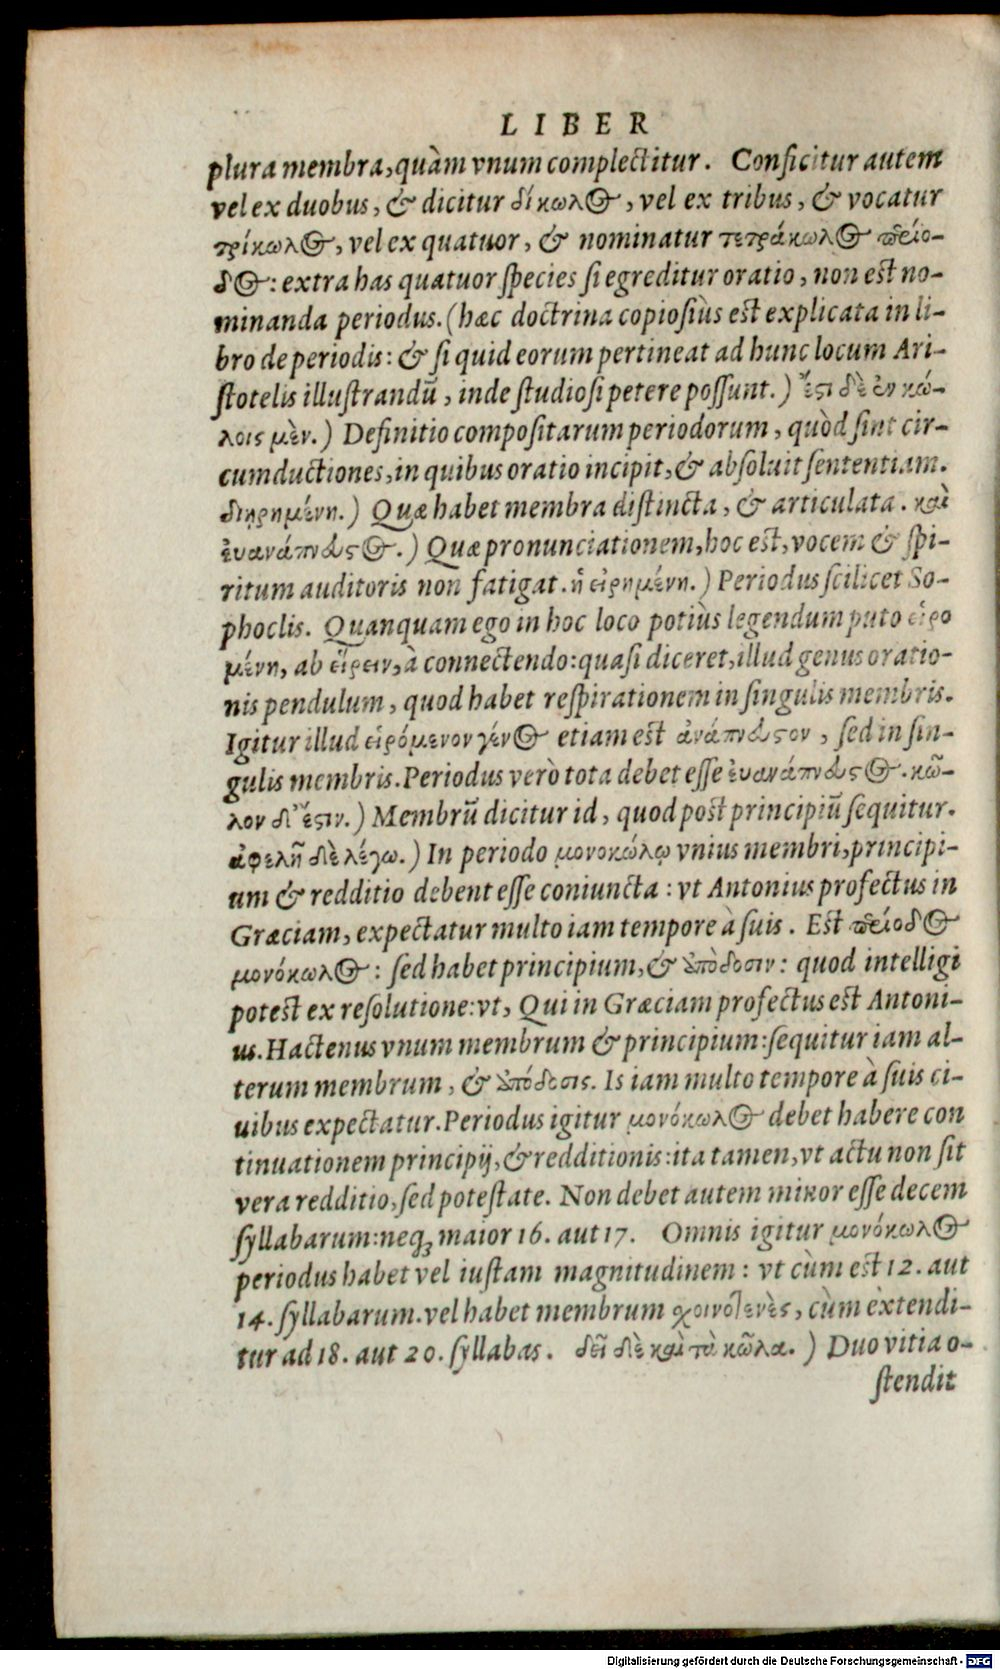 LIBER
plura membra, quàm vnum complectitur. Conficitur autem
vel ex duobus, & dicitur δίκωλος, vel ex tribus, & vocatur
τρίκωλος, vel ex quatuor, & nominatur τετράκωλος περίο-
δος: extra has quatuor species si egreditur oratio, non est no-
minanda periodus. (hæc doctrina copiosiùs est explicata in li-
bro de periodis: & si quid eorum pertineat ad hunc locum Ari-
stotelis illustrandũ, inde studiosi petere possunt.) ἔστι δὲ ἐν κώ-
λοις μὲν.) Definitio compositarum periodorum, quòd sint cir-
cumductiones, in quibus oratio incipit, & absoluit sententiam.
διῃρημένη.) Quæ habet membra distincta, & articulata. καὶ
ἐυανάπνευστος.) Quæ pronunciationem, hoc est, vocem & spi-
ritum auditoris non fatigat. ἡ εἰρημένη.) Periodus scilicet So-
phoclis. Quanquam ego in hoc loco potiùs legendum puto εἰρο
μένη, ab εἴρειν, à connectendo: quasi diceret, illud genus oratio-
nis pendulum, quod habet respirationem in singulis membris.
Igitur illud εἰρόμενον γένος etiam est ἀνάπνευστον, sed in sin-
gulis membris. Periodus verò tota debet esse ἐυανάπνευστος. κῶ-
λον δ' ἔστιν.) Membrũ dicitur id, quod post principiũ sequitur.
ἀφελῆ δὲ λέγω.) In periodo μονοκώλῳ vnius membri, principi-
um & redditio debent esse coniuncta: vt Antonius profectus in
Græciam, expectatur multo iam tempore à suis. Est περίοδος
μονόκωλος: sed habet principium, & ἀπόδοσιν: quod intelligi
potest ex resolutione: vt, Qui in Græciam profectus est Antoni-
us. Hactenus vnum membrum & principium: sequitur iam al-
terum membrum, & ἀπόδοσις. Is iam multo tempore à suis ci-
uibus expectatur. Periodus igitur μονόκωλος debet habere con
tinuationem principij, & redditionis: ita tamen, vt actu non sit
vera redditio, sed potestate. Non debet autem minor esse decem
syllabarum: neq; maior 16. aut 17. Omnis igitur μονόκωλος
periodus habet vel iustam magnitudinem: vt cùm est 12. aut
14. syllabarum. vel habet membrum σχοινοτενὲς, cùm extendi-
tur ad 18. aut 20. syllabas. δεῖ δὲ καὶ τὰ κῶλα.) Duo vitia o-
stendit
Digitalisierung gefördert durch die Deutsche Forschungsgemeinschaft - DFG